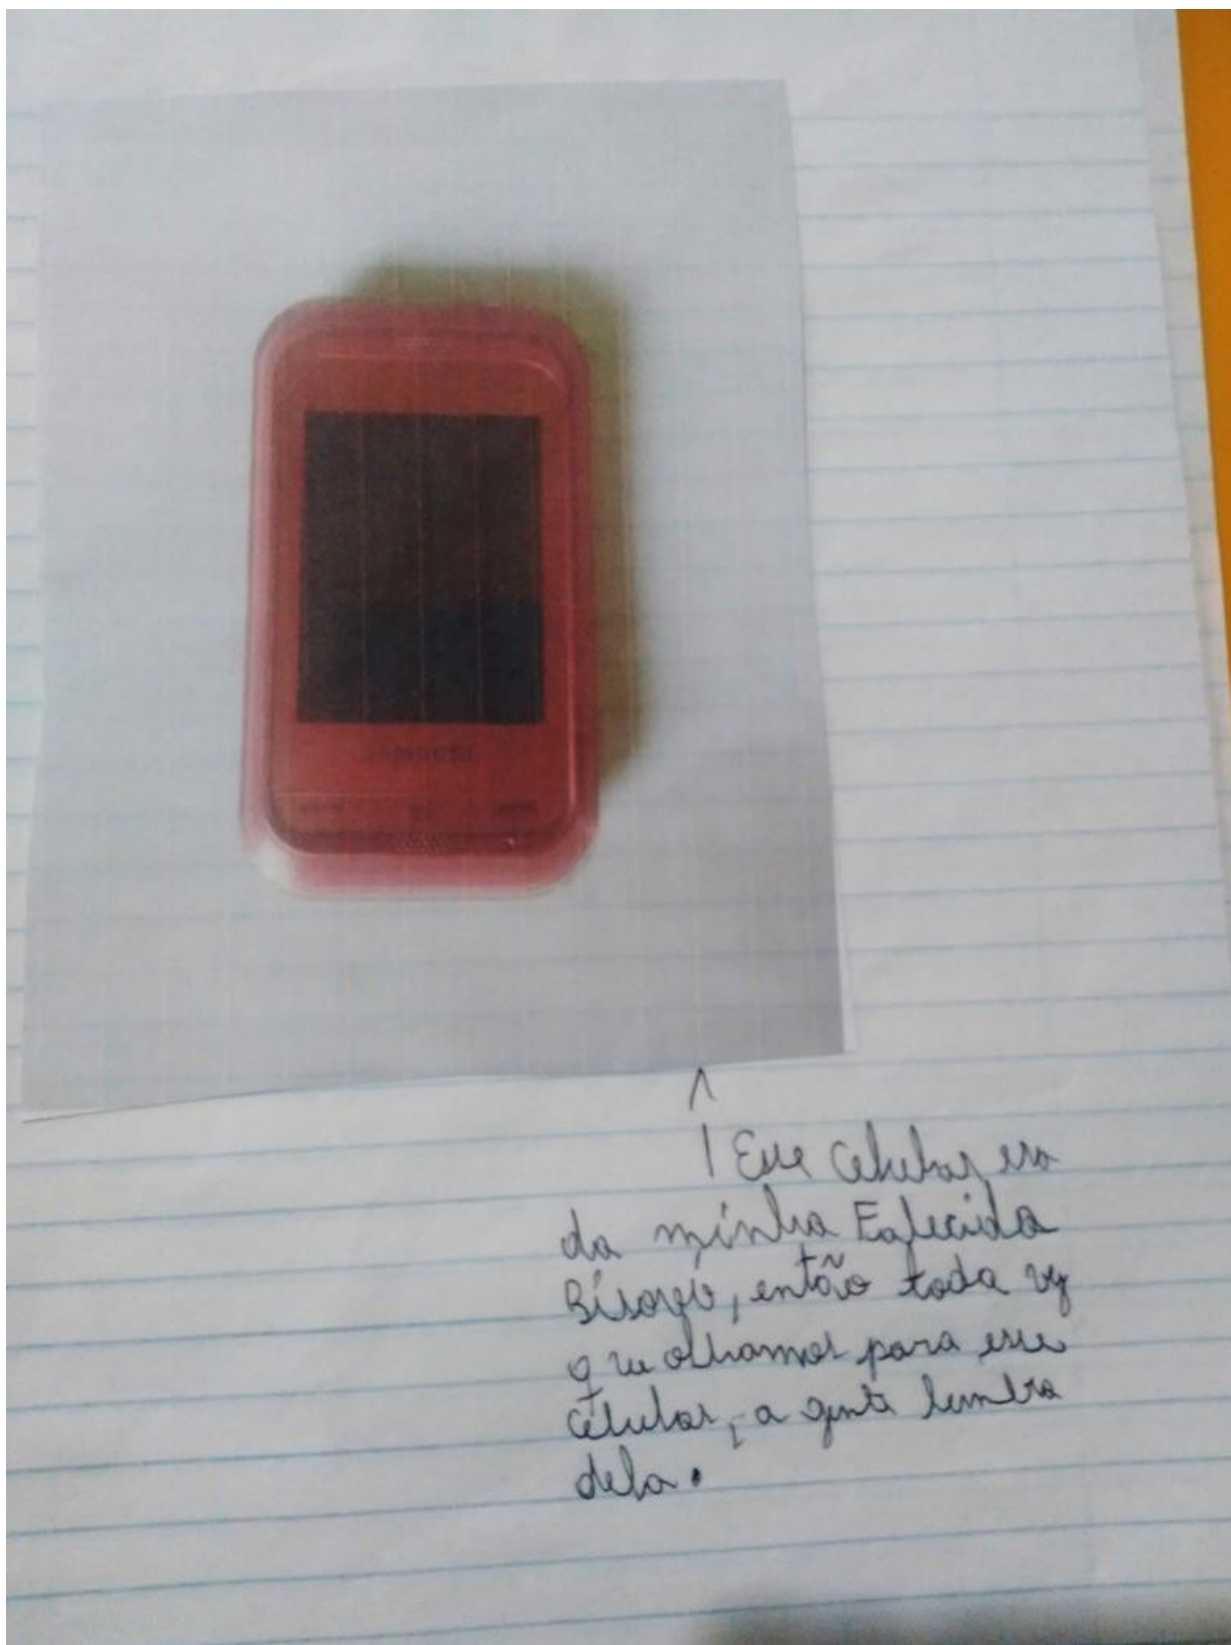 Esse celular era
da minha Falecida
Bisavó, então toda vez
que olhamos para esse
celular, a gente lembra
dela.